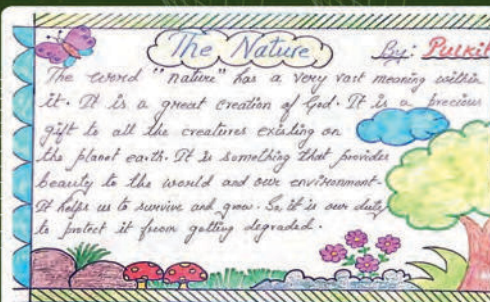 The Nature
By: Pulkit
The word "nature" has a very vast meaning within
it. It is a great creation of God. It is a precious
gift to all the creatures existing on
the planet earth. It is something that provides
beauty to the world and our environment.
It helps us to survive and grow. So it is our duty
to protect it from getting degraded.